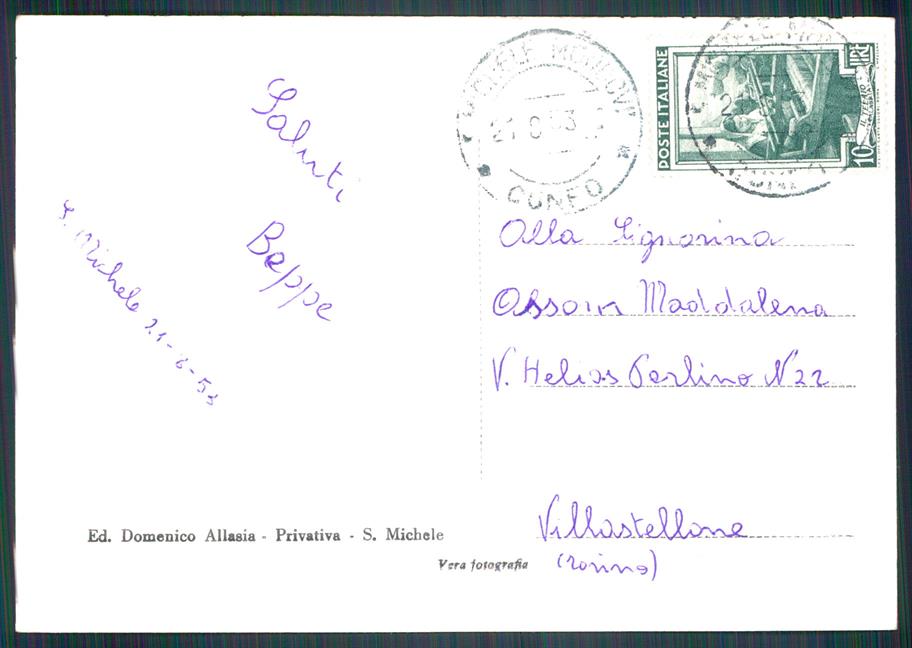 Saluti
Beppe
S. Michele 21-6-53
MICHELE MONDOVI
CUNEO
POSTE ITALIANE
LIRE
10
IL TELAIO
Alla Signorina
Ossoin Maddalena
V. Helios Perlino N 22
Villastellone
(Torino)
Ed. Domenico Allasia - Privativa - S. Michele
Vera fotografia